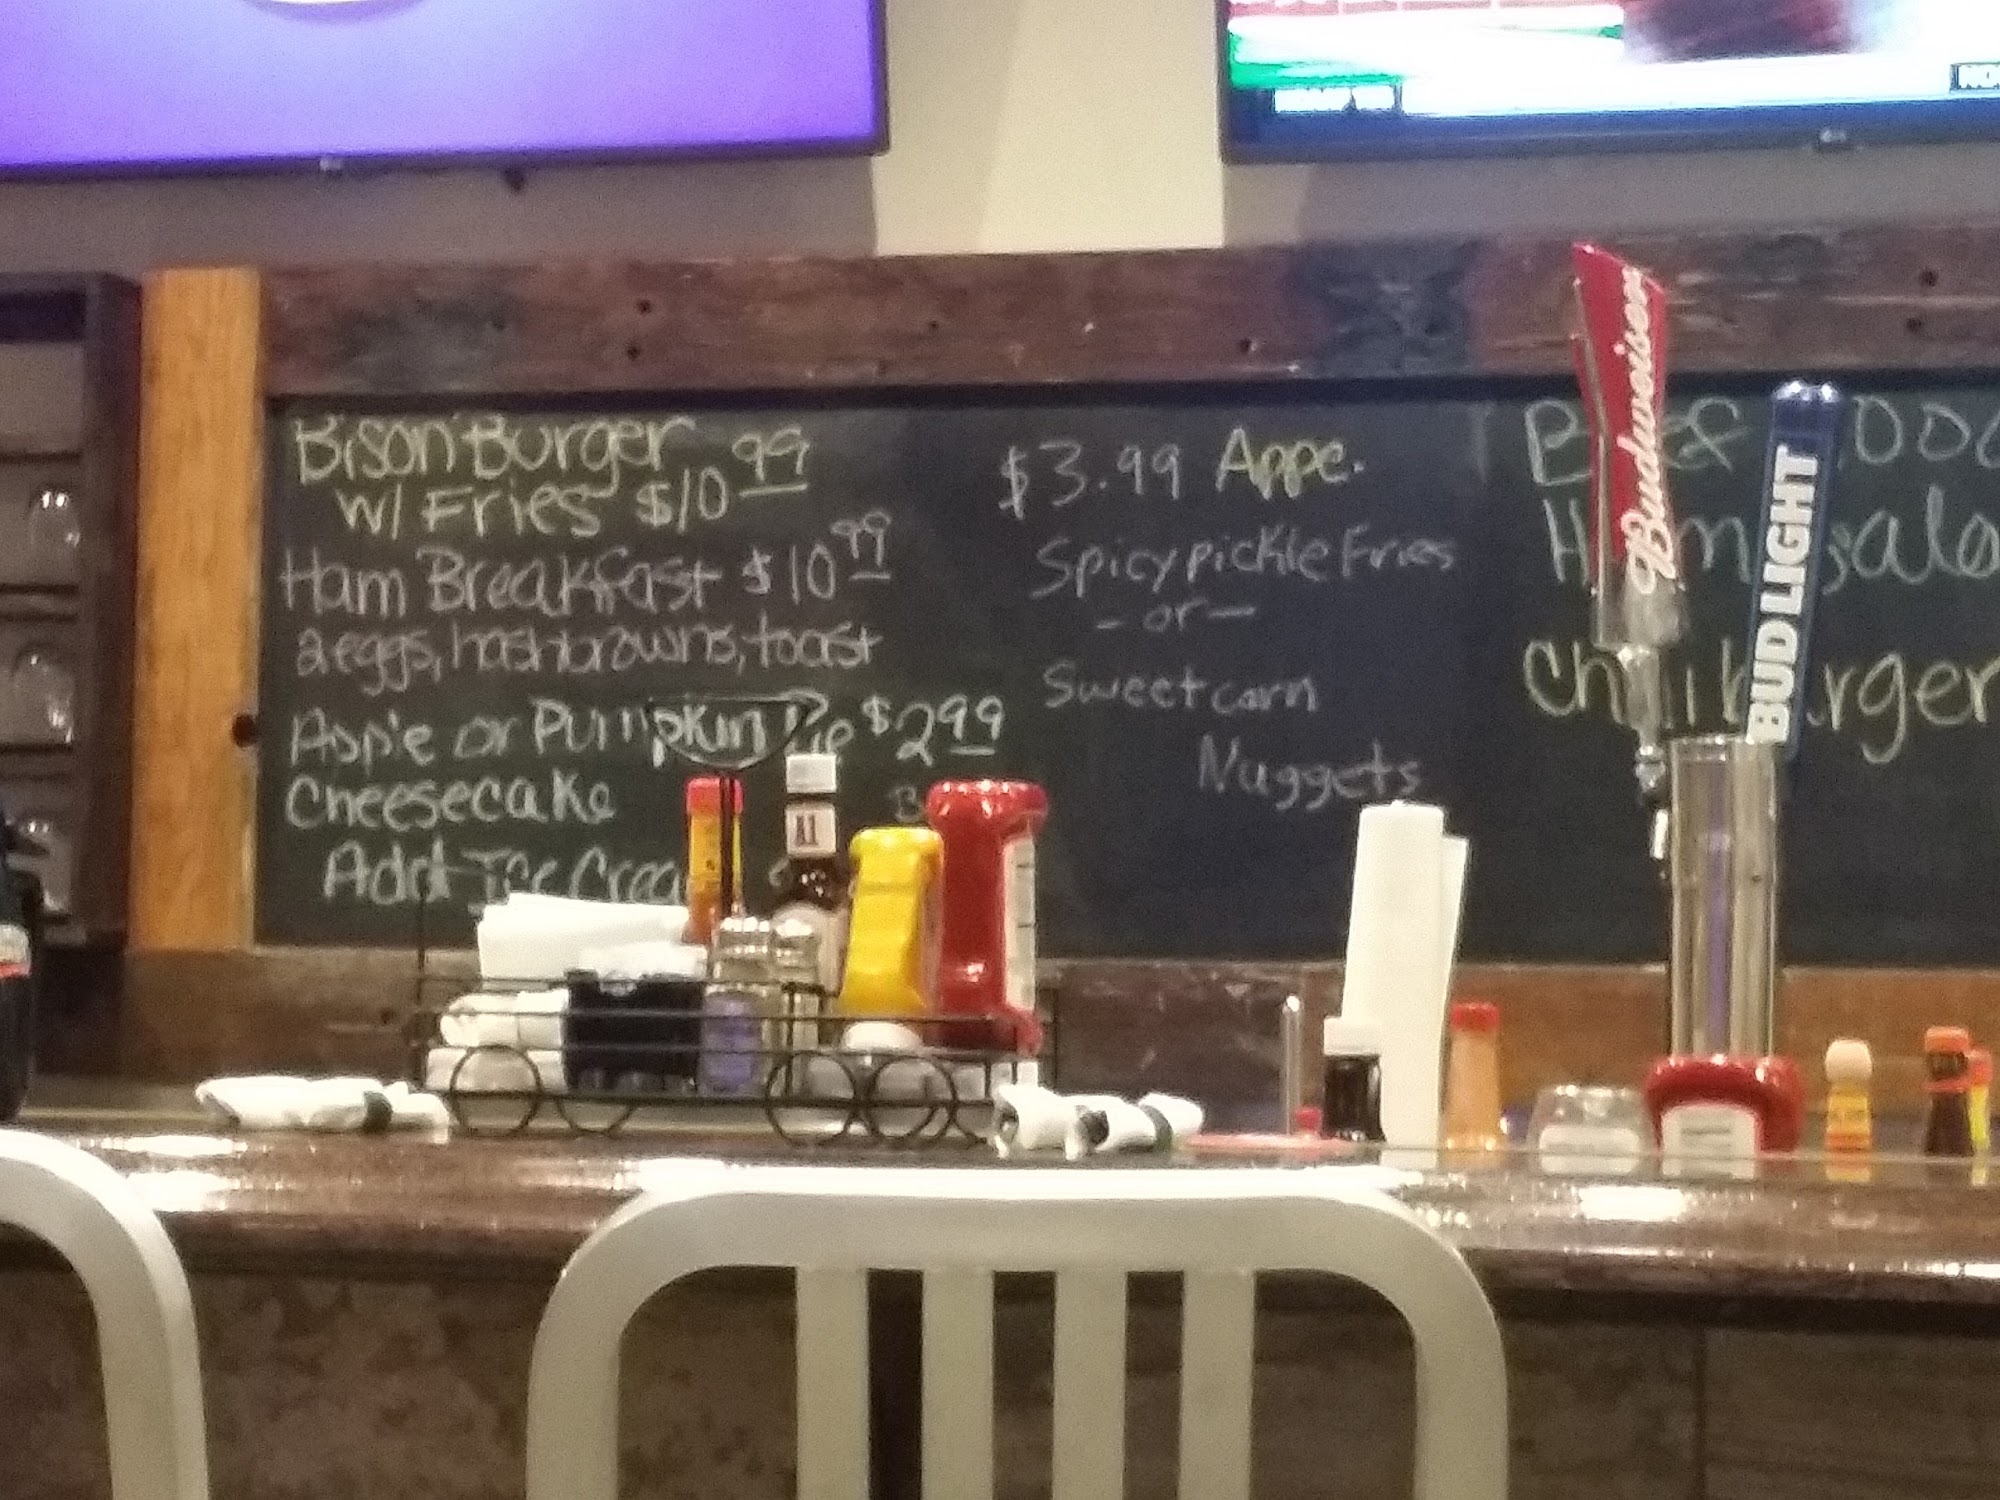 Bison Burger
w/ Fries $10 99
Ham Breakfast $10 99
2 eggs, hashbrowns, toast
Apple or Pumpkin Pie $2 99
Cheesecake
Add Ice Crea
$3.99 Appe.
Spicy pickle Fries
- or -
Sweet corn
Nuggets
Budweiser
BUD LIGHT
A1